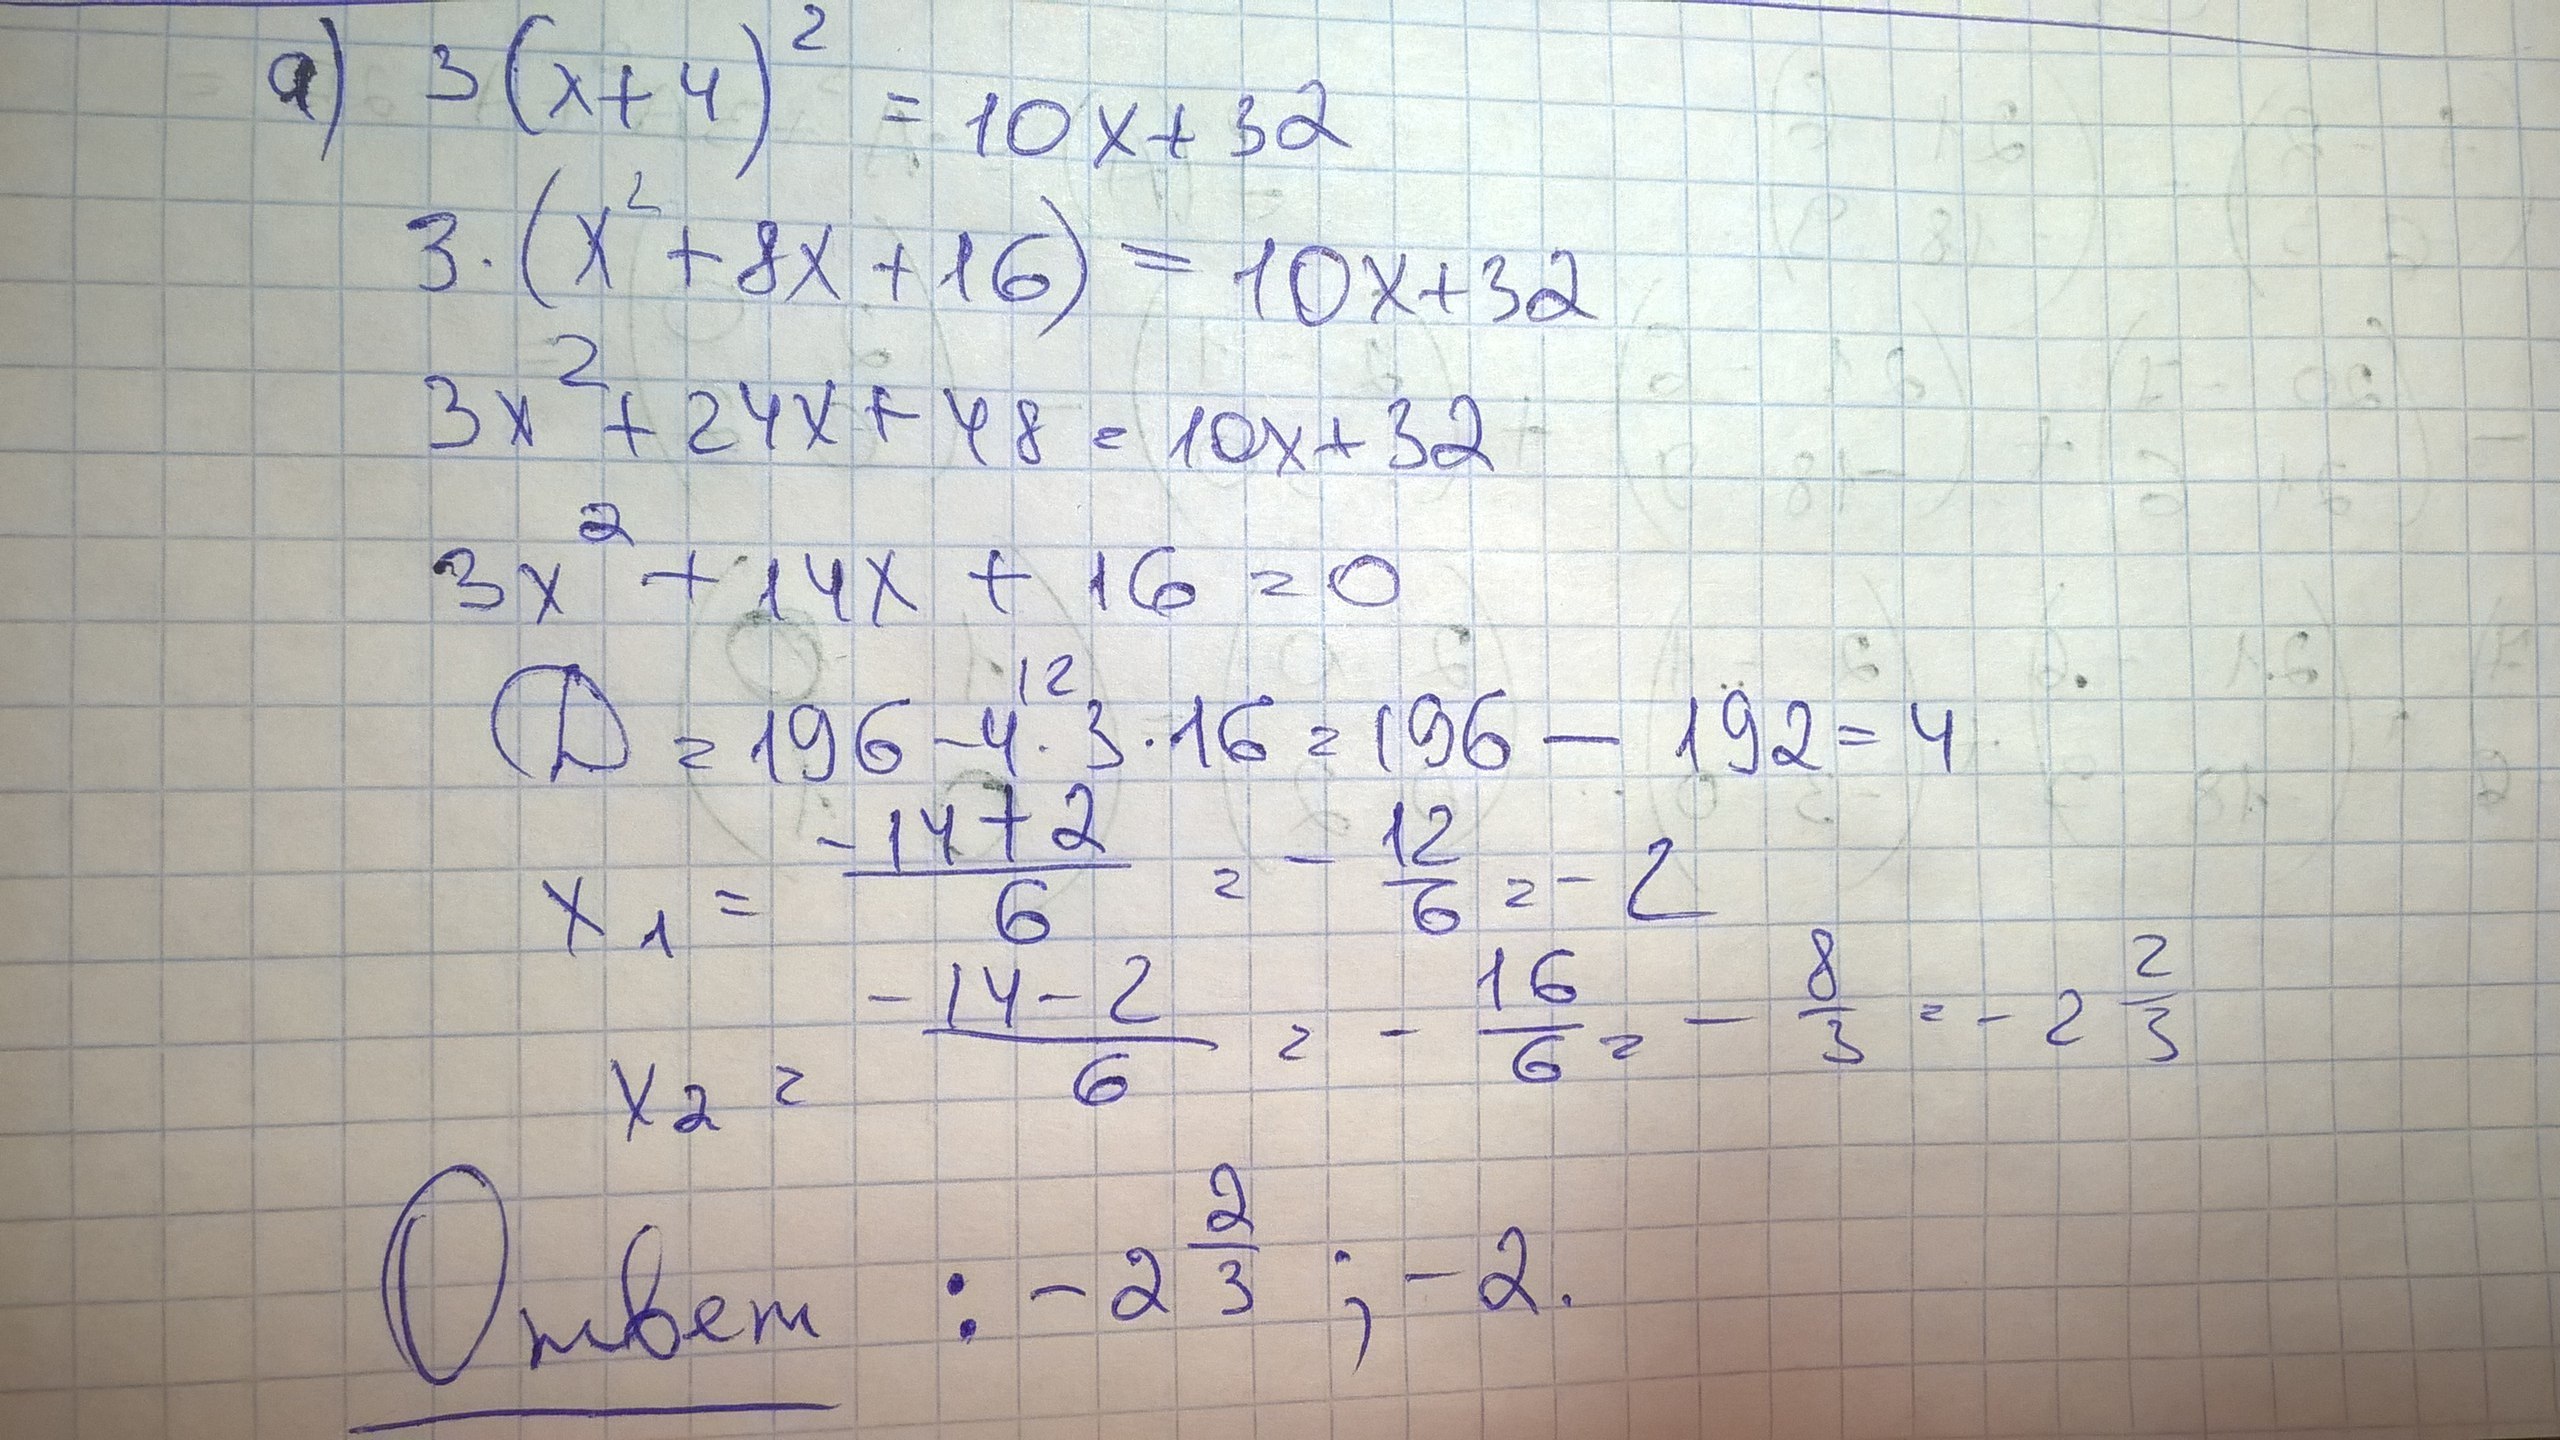 а) 3(x+4)² = 10x+32
3·(x²+8x+16) = 10x+32
3x²+24x+48=10x+32
3x²+14x+16=0
D=196-4·3·16=196-192=4
12
x₁ = (-14+2)/6 = -12/6 = -2
x₂ = (-14-2)/6 = -16/6 = -8/3 = -2 2/3
Ответ : -2 2/3 ; -2.